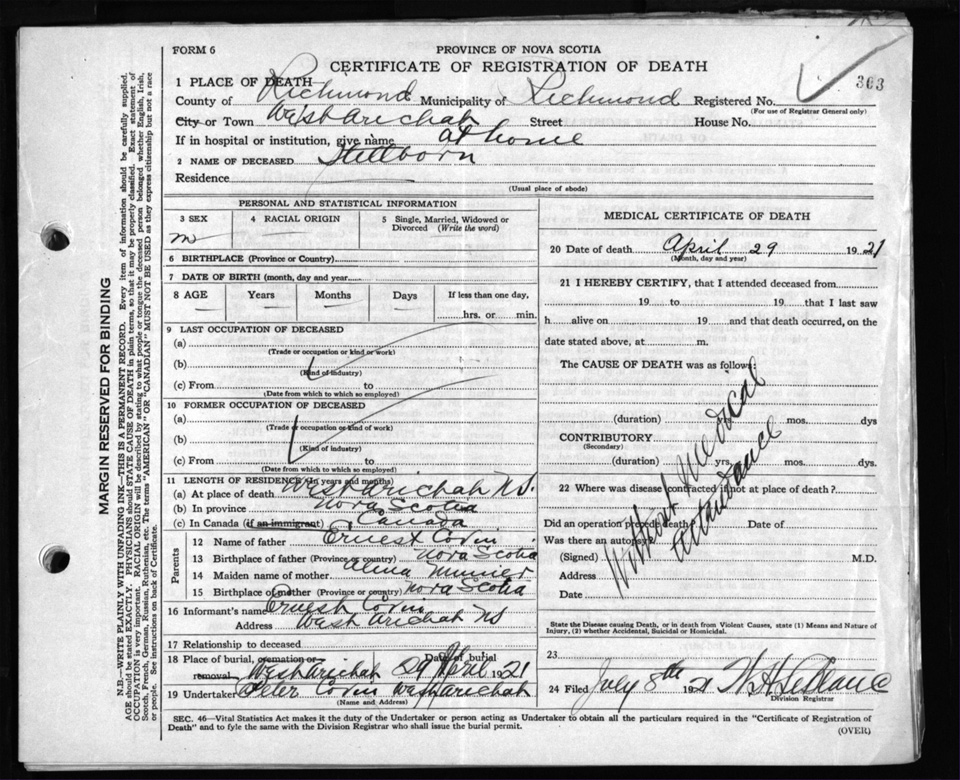 FORM 6
PROVINCE OF NOVA SCOTIA
CERTIFICATE OF REGISTRATION OF DEATH
303
1 PLACE OF DEATH—
County of Richmond Municipality of Richmond Registered No.
(For use of Registrar General only)
City or Town West Arichat Street House No.
If in hospital or institution, give name at home
2 NAME OF DECEASED Stillborn
Residence
(Usual place of abode)
PERSONAL AND STATISTICAL INFORMATION
3 SEX 4 RACIAL ORIGIN 5 Single, Married, Widowed or Divorced (Write the word)
m
6 BIRTHPLACE (Province or Country)
7 DATE OF BIRTH (month, day and year)
8 AGE Years Months Days If less than one day,
hrs. or min.
9 LAST OCCUPATION OF DECEASED
(a)
(Trade or occupation or kind or work)
(b)
(Kind of industry)
(c) From to
(Date from which to which so employed)
10 FORMER OCCUPATION OF DECEASED
(a)
(Trade or occupation or kind of work)
(b)
(Kind of industry)
(c) From to
(Date from which to which so employed)
11 LENGTH OF RESIDENCE (In years and months)
(a) At place of death West Arichat N.S.
(b) In province Nova Scotia
(c) In Canada (if an immigrant) Canada
Parents
12 Name of father Ernest
13 Birthplace of father (Province or country) Nova Scotia
14 Maiden name of mother
15 Birthplace of mother (Province or country) Nova Scotia
16 Informant's name Ernest
Address West Arichat NS
17 Relationship to deceased
18 Place of burial, cremation or removal West Arichat Date of burial 29 April 1921
19 Undertaker Peter West Arichat
(Name and Address)
MEDICAL CERTIFICATE OF DEATH
20 Date of death April 29 1921
(Month, day and year)
21 I HEREBY CERTIFY, that I attended deceased from
19 to 19 that I last saw
h alive on 19 and that death occurred, on the
date stated above, at m.
The CAUSE OF DEATH was as follows:
(duration) yrs. mos. dys
CONTRIBUTORY
(Secondary)
(duration) yrs. mos. dys.
Without medical
attendance
22 Where was disease contracted if not at place of death?
Did an operation precede death? Date of
Was there an autopsy?
(Signed) M.D.
Address
Date
State the Disease causing Death, or in death from Violent Causes, state (1) Means and Nature of
Injury, (2) whether Accidental, Suicidal or Homicidal.
23
24 Filed July 8th 1921 W H LeBlanc
Division Registrar
SEC. 46—Vital Statistics Act makes it the duty of the Undertaker or person acting as Undertaker to obtain all the particulars required in the "Certificate of Registration of
Death" and to fyle the same with the Division Registrar who shall issue the burial permit.
(OVER)
MARGIN RESERVED FOR BINDING
N.B.—WRITE PLAINLY WITH UNFADING INK—THIS IS A PERMANENT RECORD. Every item of information should be carefully supplied.
AGE should be stated EXACTLY. PHYSICIANS should STATE CAUSE OF DEATH in plain terms, so that it may be properly classified. Exact statement of
OCCUPATION is very important. RACIAL ORIGIN will be described by stating to what people or tongue the deceased person belonged whether English, Irish,
Scotch, French, German, Russian, Ruthenian, etc. The terms "AMERICAN" OR "CANADIAN" MUST NOT BE USED as they express citizenship but not a race
or people. See instructions on back of Certificate.